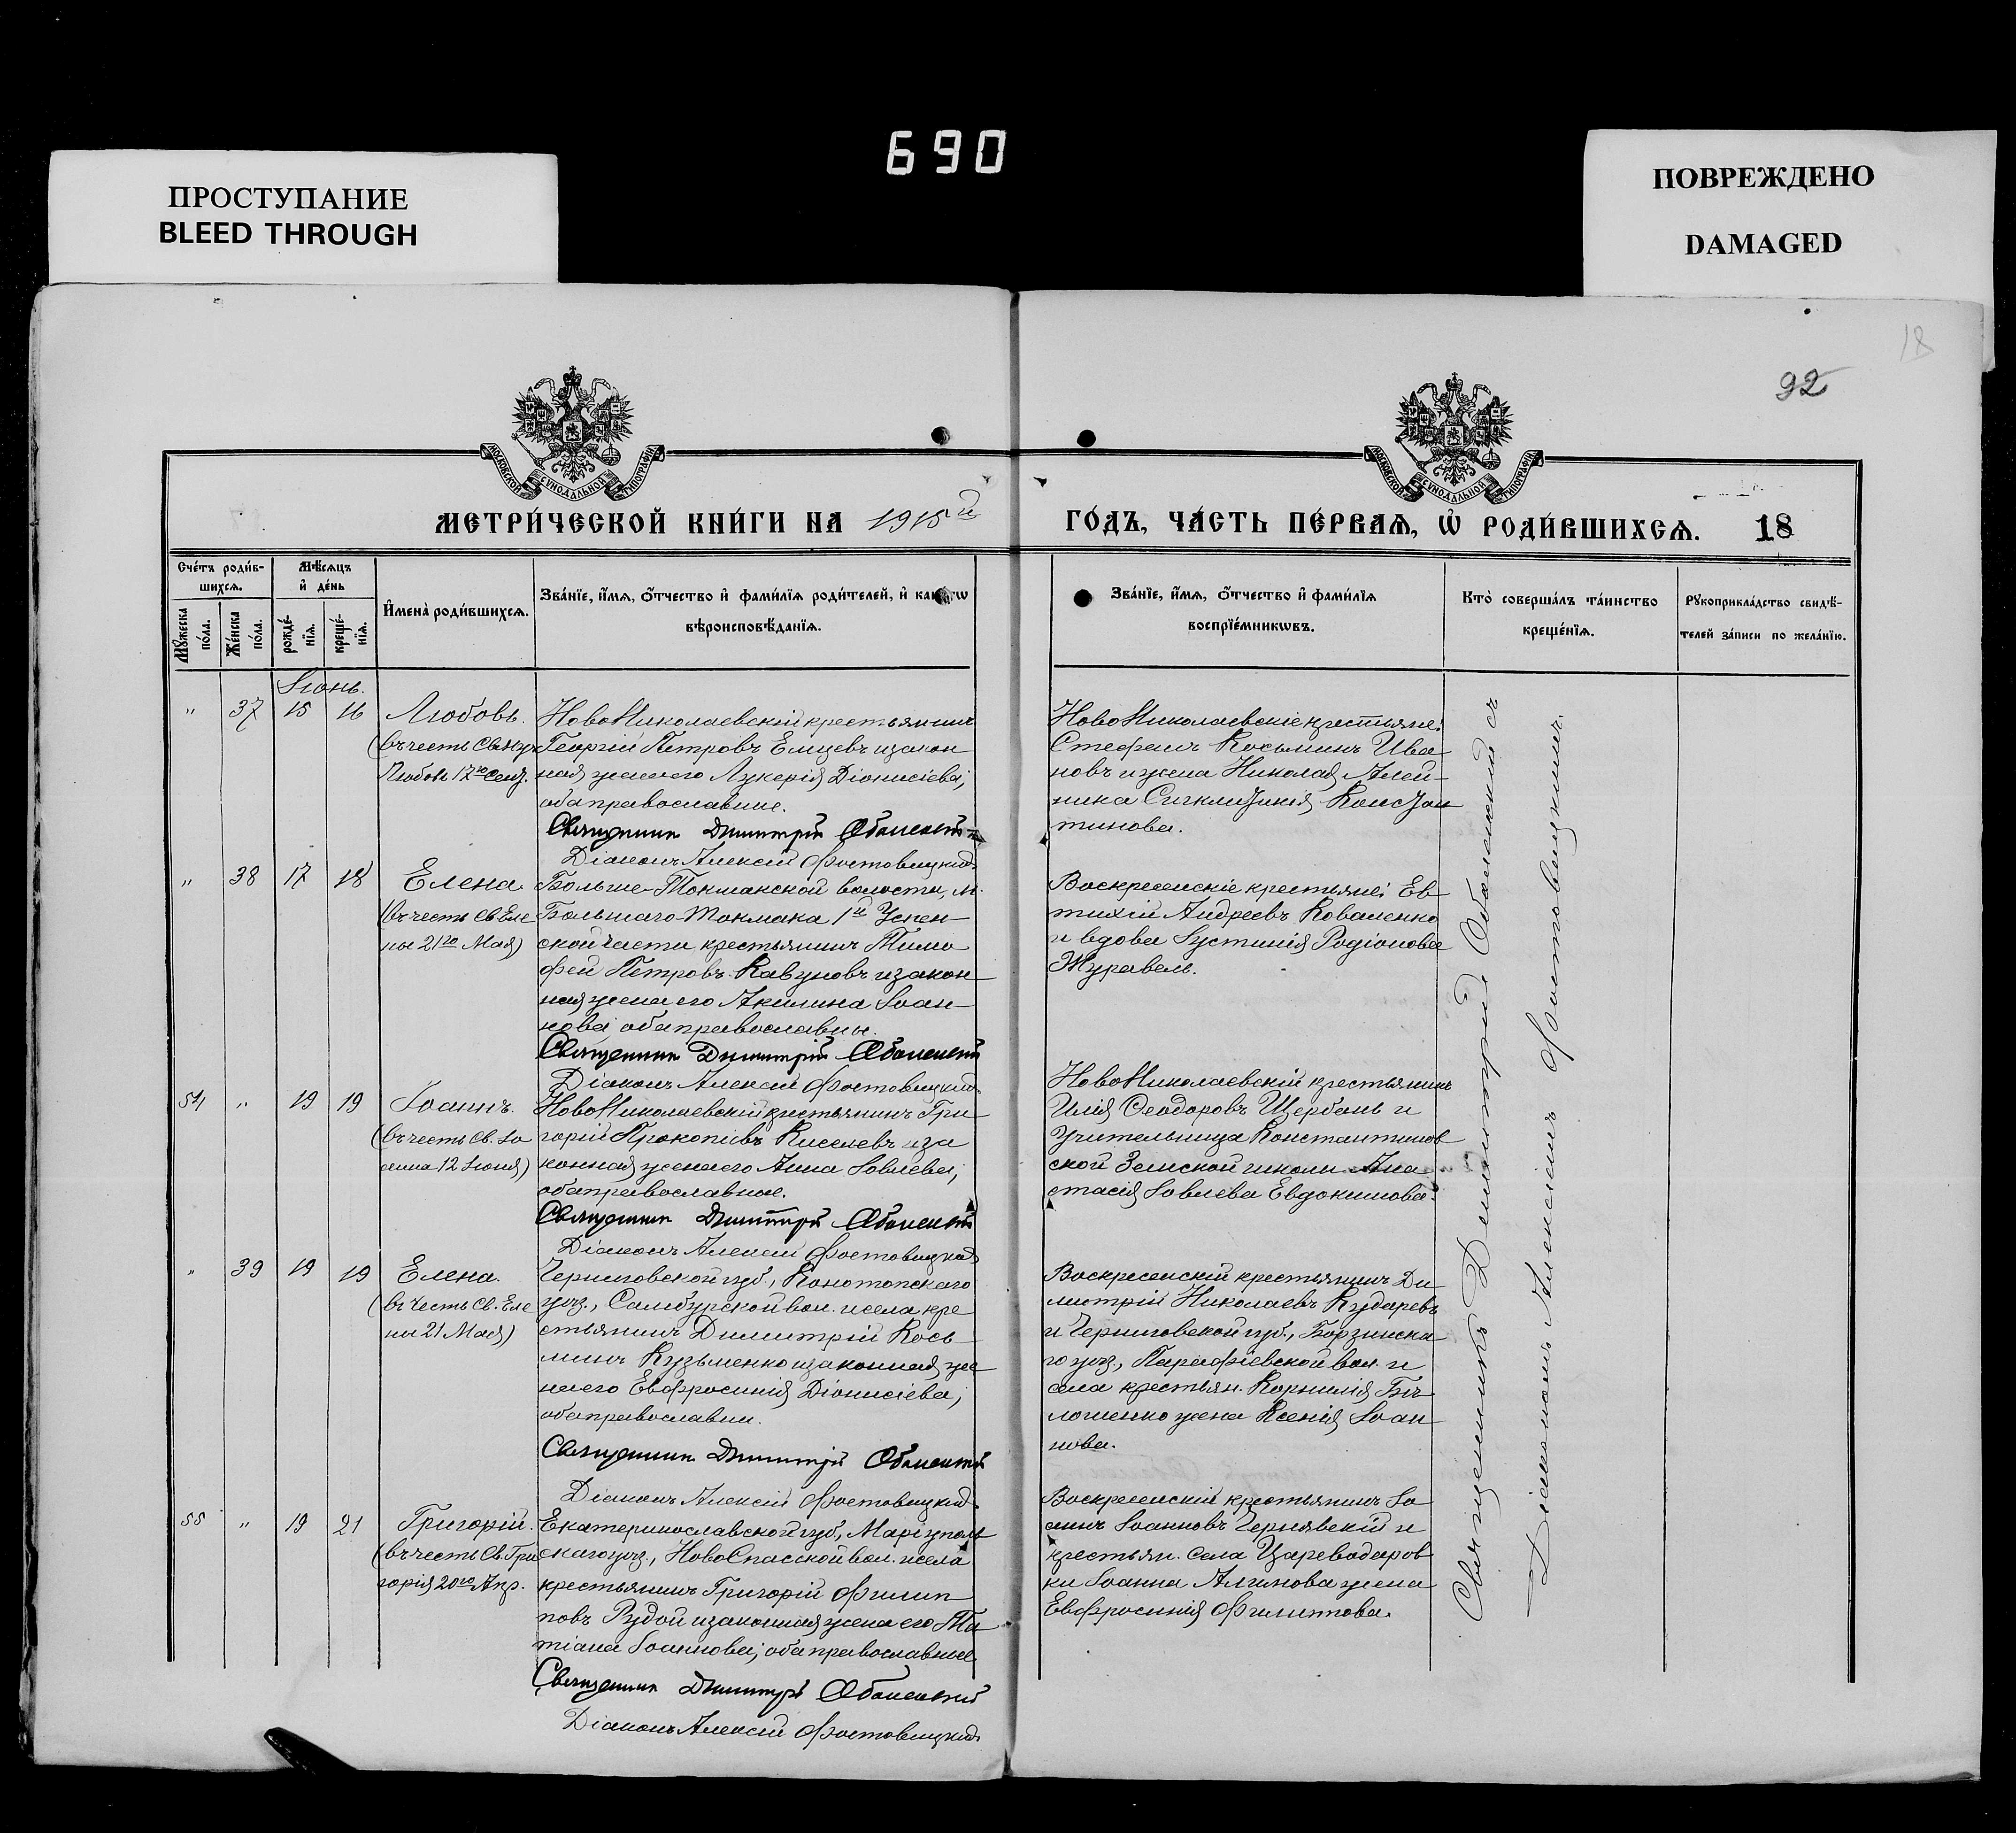 690
ПРОСТУПАНИЕ
BLEED THROUGH
ПОВРЕЖДЕНО
DAMAGED
18
92
МОСКОВСКОЙ СѴНОДАЛЬНОЙ ТИПОГРАФІИ
МОСКОВСКОЙ СѴНОДАЛЬНОЙ ТИПОГРАФІИ
МЕТРИ́ЧЕСКОЙ КНИ́ГИ НА 1915й
ГО́ДЪ, ЧА́СТЬ ПЕ́РВАѦ, Ѡ҆ РОДИ́ВШИХСѦ. 18
Сче́тъ роди́в-
шихсѧ.
Мѣ́сѧцъ
и҆ де́нь
Мꙋ́жеска
по́ла.
Же́нска
по́ла.
рожде́-
нїѧ.
креще́-
нїѧ.
И҆мена̀ роди́вшихсѧ.
Зва́нїе, и҆́мѧ, ѻ҆́тчество и҆ фами́лїѧ роди́телей, и҆ как
вѣроисповѣ́данїѧ.
Зва́нїе, и҆́мѧ, ѻ҆́тчество и҆ фами́лїѧ
воспрїе́мникѡвъ.
Кто̀ соверша́лъ та́инство
креще́нїѧ.
Рꙋкоприкла́дство свидѣ́-
телей за́писи по жела́нїю.
Іюнь.
" 37 15 16 Любовь.
(въ честь Св. муч.
Любови 17го Сент.
НовоНиколаевскій крестьянинъ
Георгій Петровъ Елцевъ и закон
ная жена его Лукерія Діонисіева;
оба православные.
Священникъ Димитрій Оболенскій
Діаконъ Алексій Фростовицкій
НовоНиколаевскіе крестьяне:
Стефанъ Косьминъ Ива
новъ и жена Николая Алей-
ника Синклитикія Констан
тинова.
" 38 17 18 Елена.
(въ честь Св. Еле
ны 21го Мая)
Больше-Токмакской волости, м.
Большаго-Токмака 1й Успен-
ской части крестьянинъ Тимо
фей Петровъ Кавуновъ и закон
ная жена его Акилина Іоан-
нова; оба православны.
Священникъ Димитрій Оболенскій
Діаконъ Алексій Фростовицкій
Воскресенскіе крестьяне: Ев
тихій Андреевъ Коваленко
и вдова Іустинія Родіонова
Журавель.
54 " 19 19 Іоаннъ.
(въ честь Св. Іо
анна 12 Іюня)
НовоНиколаевскій крестьянинъ Гри
горій Прокопіевъ Киселевъ и за
конная жена его Анна Іовлева;
оба православные.
Священникъ Димитрій Оболенскій
Діаконъ Алексій Фростовицкій
НовоНиколаевскій крестьянинъ
Илія Ѳеодоровъ Щербань и
учительница Константинов
ской Земской школы Ана
стасія Іовлева Евдокимова.
" 39 19 19 Елена.
(въ честь Св. Еле
ны 21 Мая)
Черниговской губ., Конотопскаго
уѣз., Самбурской вол. и села кре
стьянинъ Димитрій Кось
минъ Кузьменко и законная же
на его Евфросинія Діонисіева;
оба православны.
Священникъ Димитрій Оболенскій
Діаконъ Алексій Фростовицкій
Воскресенскій крестьянинъ Ди
митрій Николаевъ Кударевъ
и Черниговской губ., Борзинска
го уѣз., Парафіевской вол. и
села крестьян. Корнилія Бѣ
лошенко жена Ксенія Іоан
нова.
55 " 19 21 Григорій.
(въ честь Св. Гри
горія 20го Апр.
Екатеринославской губ., Маріуполь
скаго уѣз., НовоСпасской вол. и села
крестьянинъ Григорій Филип
повъ Рудой и законная жена его Та
тіана Іоаннова; оба православные
Священникъ Димитрій Оболенскій
Діаконъ Алексій Фростовицкій
Воскресенскій крестьянинъ Іо
аннъ Іоанновъ Чернявскій и
крестьян. села Цареводаров
ки Іоанна Алимова жена
Евфросинія Филиппова.
Священникъ Димитрій Оболенскій съ
Діакономъ Алексіемъ Фростовицкимъ.